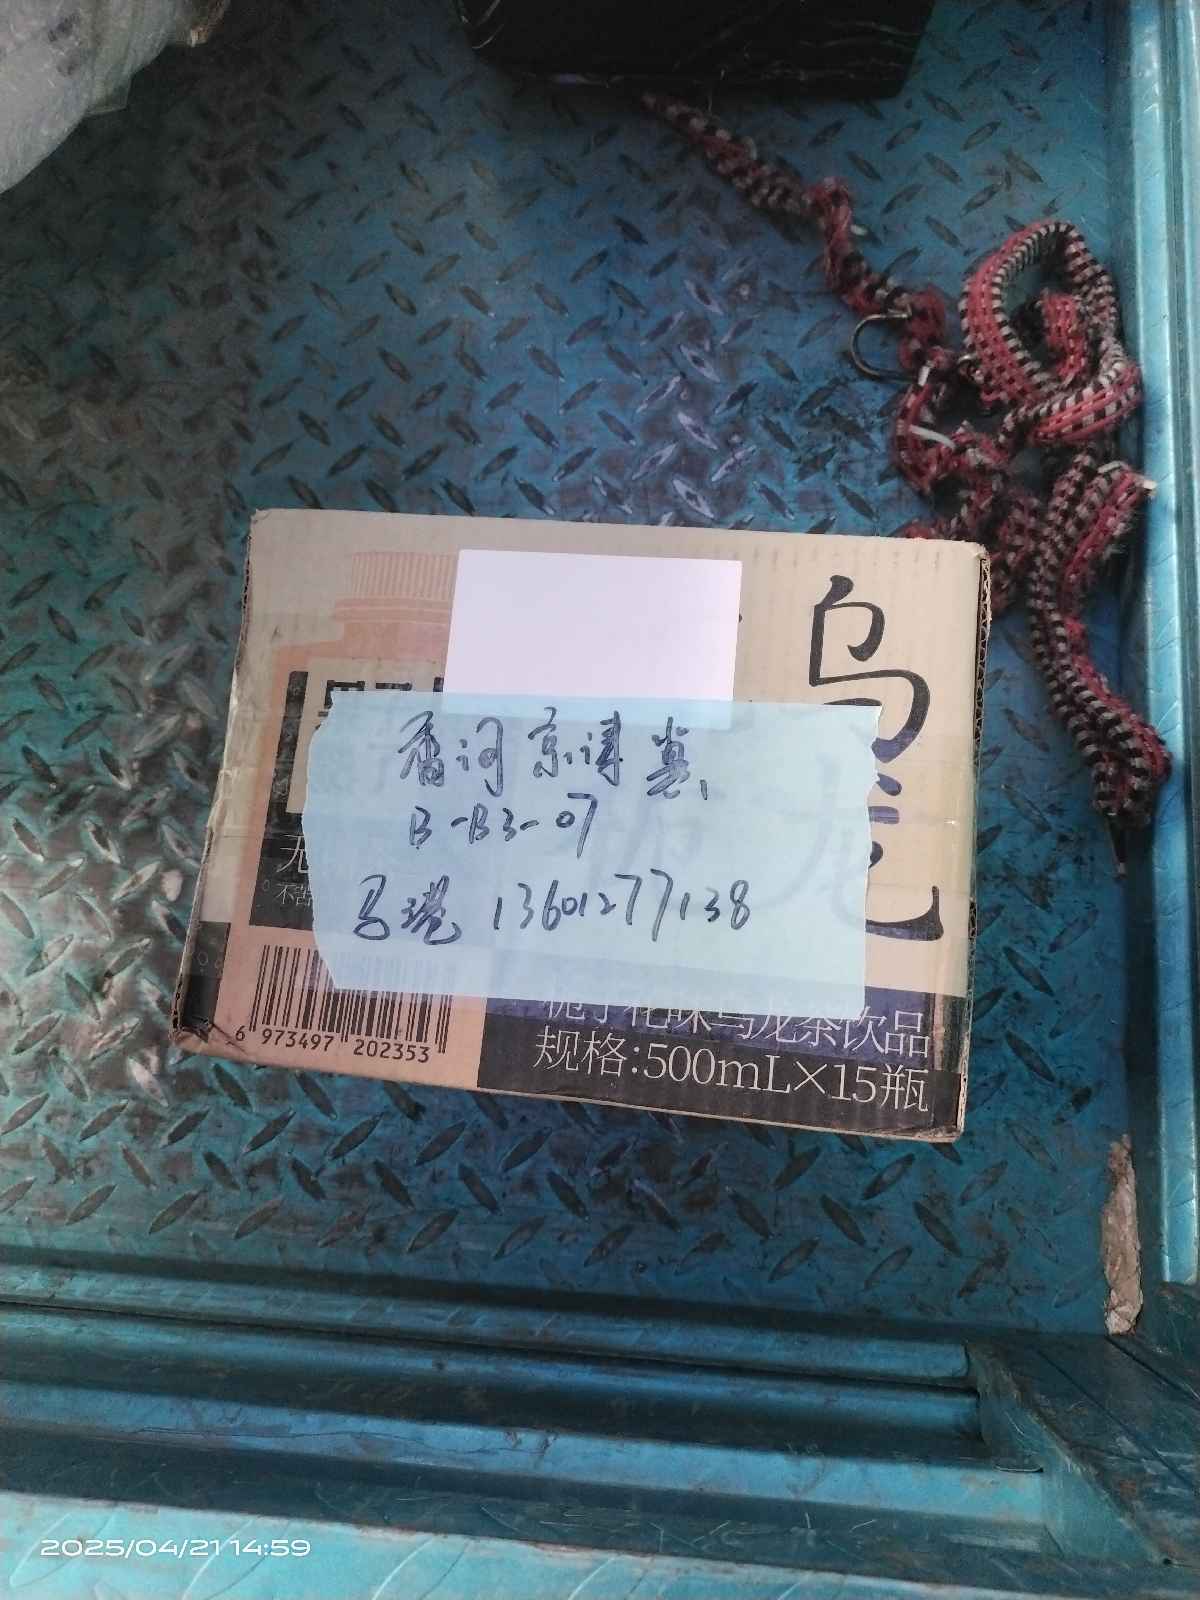 乌
龙
B-B3-07
马 13601277138
无
不
6 973497 202353
栀子花味乌龙茶饮品
规格:500mL×15瓶
2025/04/21 14:59